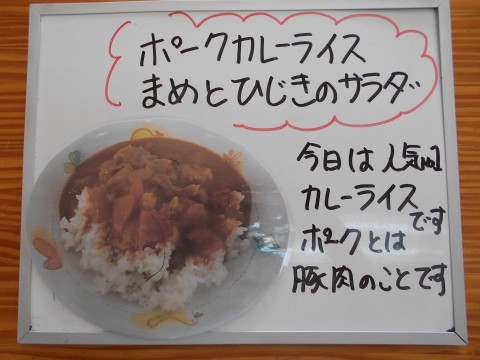 ポークカレーライス
まめとひじきのサラダ
今日は人気No.1
カレーライス
です
ポークとは
豚肉のことです